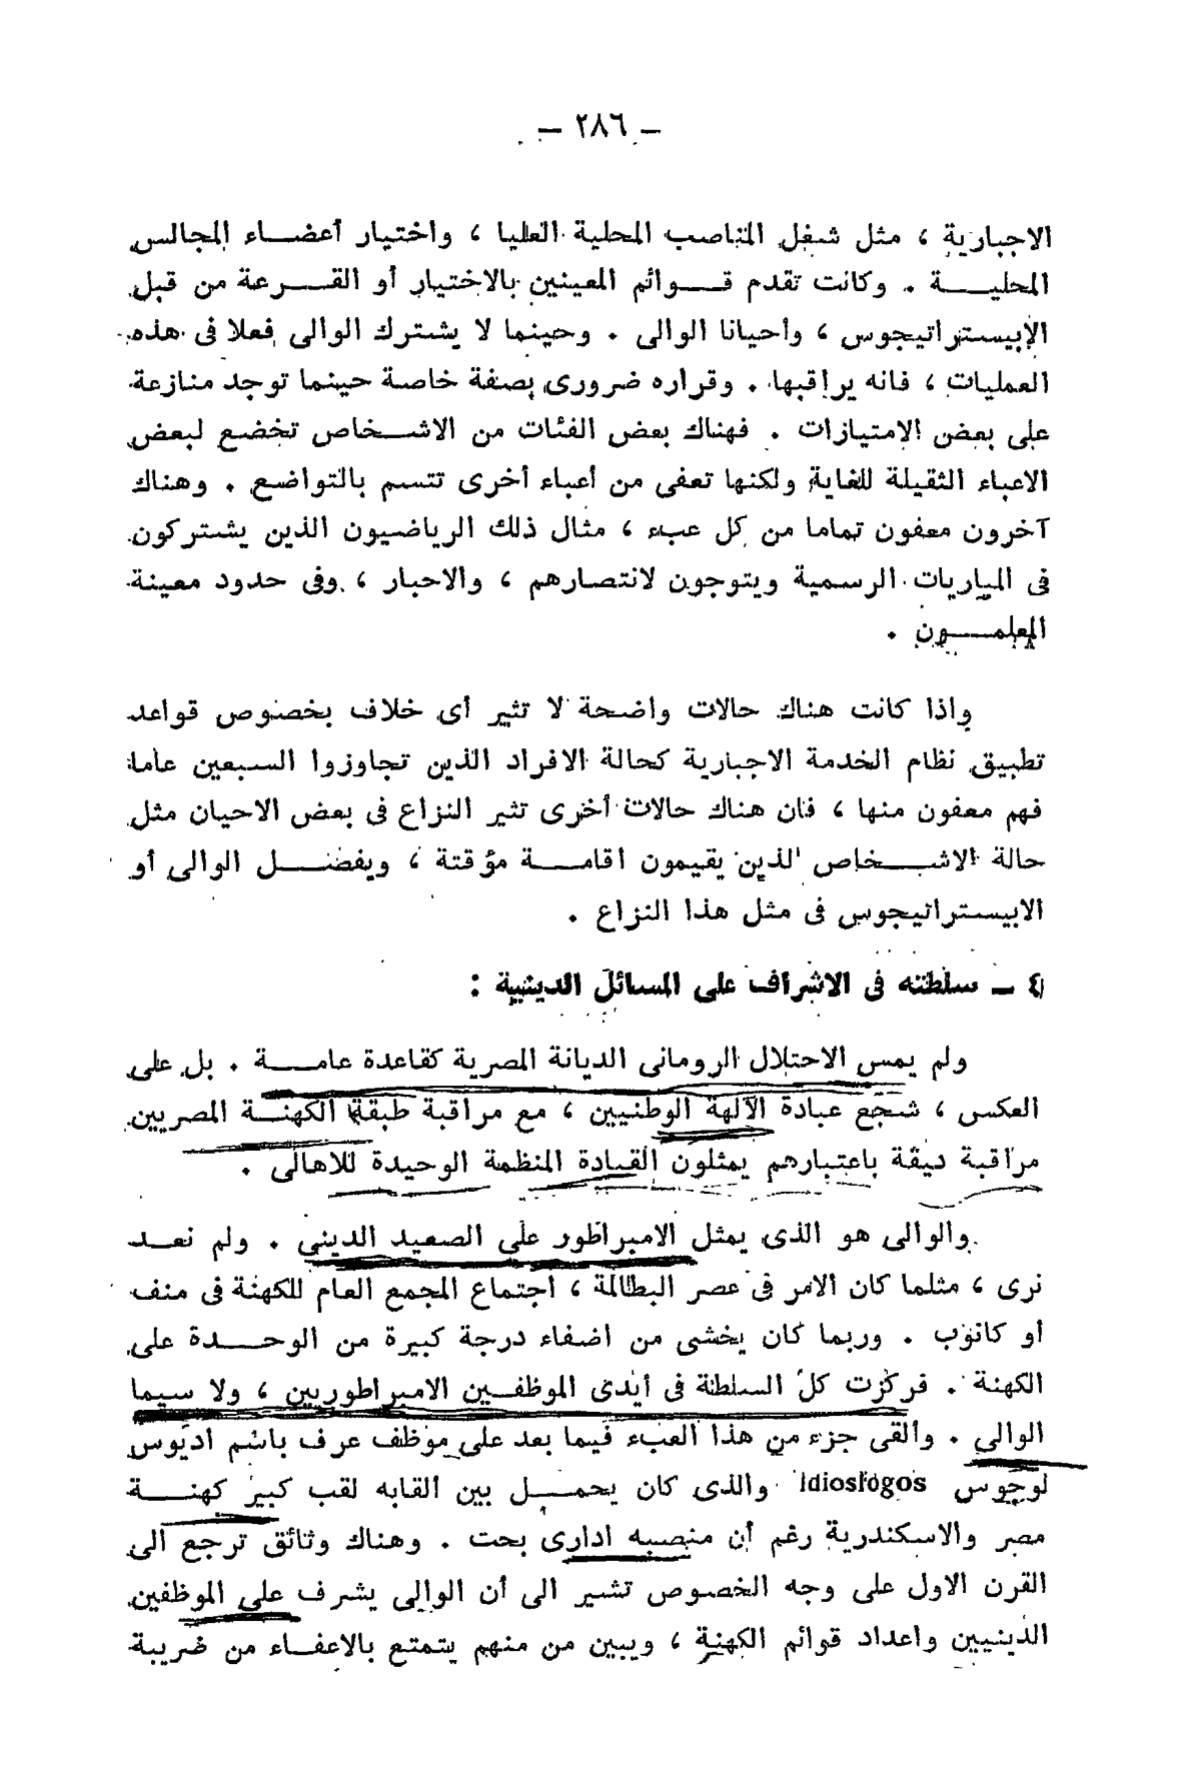 — ٢٨٦ —
الاجبارية ، مثل شغل المناصب المحلية العليا ، واختيار أعضاء المجالس
المحلية . وكانت تقدم قوائم المعينين بالاختيار أو القرعة من قبل
الإبيستراتيجوس ، وأحيانا الوالى . وحينما لا يشترك الوالى فعلا فى هذه
العمليات ، فانه يراقبها . وقراره ضرورى بصفة خاصة حينما توجد منازعة
على بعض الامتيازات . فهناك بعض الفئات من الاشخاص تخضع لبعض
الاعباء الثقيلة للغاية ولكنها تعفى من أعباء أخرى تتسم بالتواضع . وهناك
آخرون معفون تماما من كل عبء ، مثال ذلك الرياضيون الذين يشتركون
فى المباريات الرسمية ويتوجون لانتصارهم ، والاحبار ، وفى حدود معينة
المعلمون .
واذا كانت هناك حالات واضحة لا تثير أى خلاف بخصوص قواعد
تطبيق نظام الخدمة الاجبارية كحالة الافراد الذين تجاوزوا السبعين عاما
فهم معفون منها ، فان هناك حالات أخرى تثير النزاع فى بعض الاحيان مثل
حالة الاشخاص الذين يقيمون اقامة مؤقتة ، ويفضل الوالى أو
الابيستراتيجوس فى مثل هذا النزاع .
٤ — سلطته فى الاشراف على المسائل الدينية :
ولم يمس الاحتلال الرومانى الديانة المصرية كقاعدة عامة . بل على
العكس ، شجع عبادة الآلهة الوطنيين ، مع مراقبة طبقة الكهنة المصريين
مراقبة دقيقة باعتبارهم يمثلون القيادة المنظمة الوحيدة للاهالى .
والوالى هو الذى يمثل الامبراطور على الصعيد الدينى . ولم نعد
نرى ، مثلما كان الامر فى عصر البطالمة ، اجتماع المجمع العام للكهنة فى منف
أو كانوب . وربما كان يخشى من اضفاء درجة كبيرة من الوحدة على
الكهنة . فركزت كل السلطة فى أيدى الموظفين الامبراطوريين ، ولا سيما
الوالى . وألقى جزء من هذا العبء فيما بعد على موظف عرف باسم اديوس
لوجوس Idioslogos والذى كان يحمل بين القابه لقب كبير كهنة
مصر والاسكندرية رغم أن منصبه ادارى بحت . وهناك وثائق ترجع الى
القرن الاول على وجه الخصوص تشير الى أن الوالى يشرف على الموظفين
الدينيين واعداد قوائم الكهنة ، ويبين من منهم يتمتع بالاعفاء من ضريبة